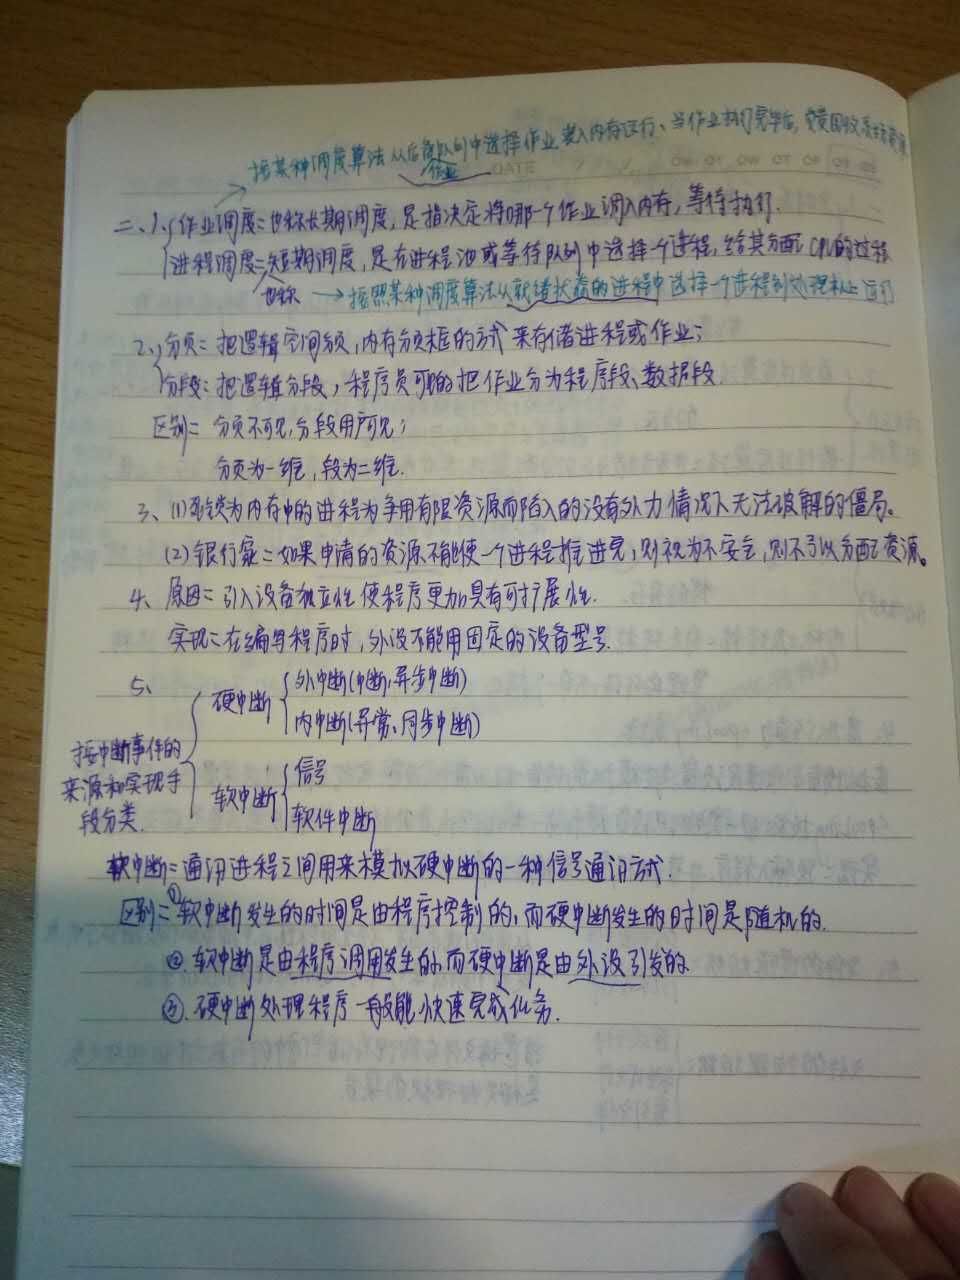 按某种调度算法从后备队列中选择作业装入内存运行、当作业执行完毕后,
作业
DATE
二、1、作业调度:也称长期调度,是指决定将哪一个作业调入内存,等待执行.
进程调度:短期调度,是在进程池或等待队列中选择一个进程,给其分配CPU的过程
也称 → 按照某种调度算法从就绪状态的进程中选择一个进程到处理机上运行
2、分页:把逻辑空间分页,内存分页框的方式来存储进程或作业;
分段:把逻辑分段,程序员可能的把作业分为程序段、数据段.
区别:分页不可见,分段用户可见;
分页为一维,段为二维.
3、(1)死锁为内存中的进程为争用有限资源而陷入的没有外力情况下无法破解的僵局。
(2)银行家:如果申请的资源不能使一个进程推进完,则视为不安全,则不予以分配资源。
4、原因:引入设备独立性使程序更加具有可扩展性.
实现:在编写程序时,外设不能用固定的设备型号.
5、
硬中断 外中断(中断,异步中断)
内中断(异常、同步中断)
按中断事件的来源和实现手段分类.
软中断 信号
软件中断
软中断:通讯进程之间用来模拟硬中断的一种信号通讯方式.
区别:①软中断发生的时间是由程序控制的,而硬中断发生的时间是随机的.
②.软中断是由程序调用发生的,而硬中断是由外设引发的
③.硬中断处理程序一般能快速完成任务.